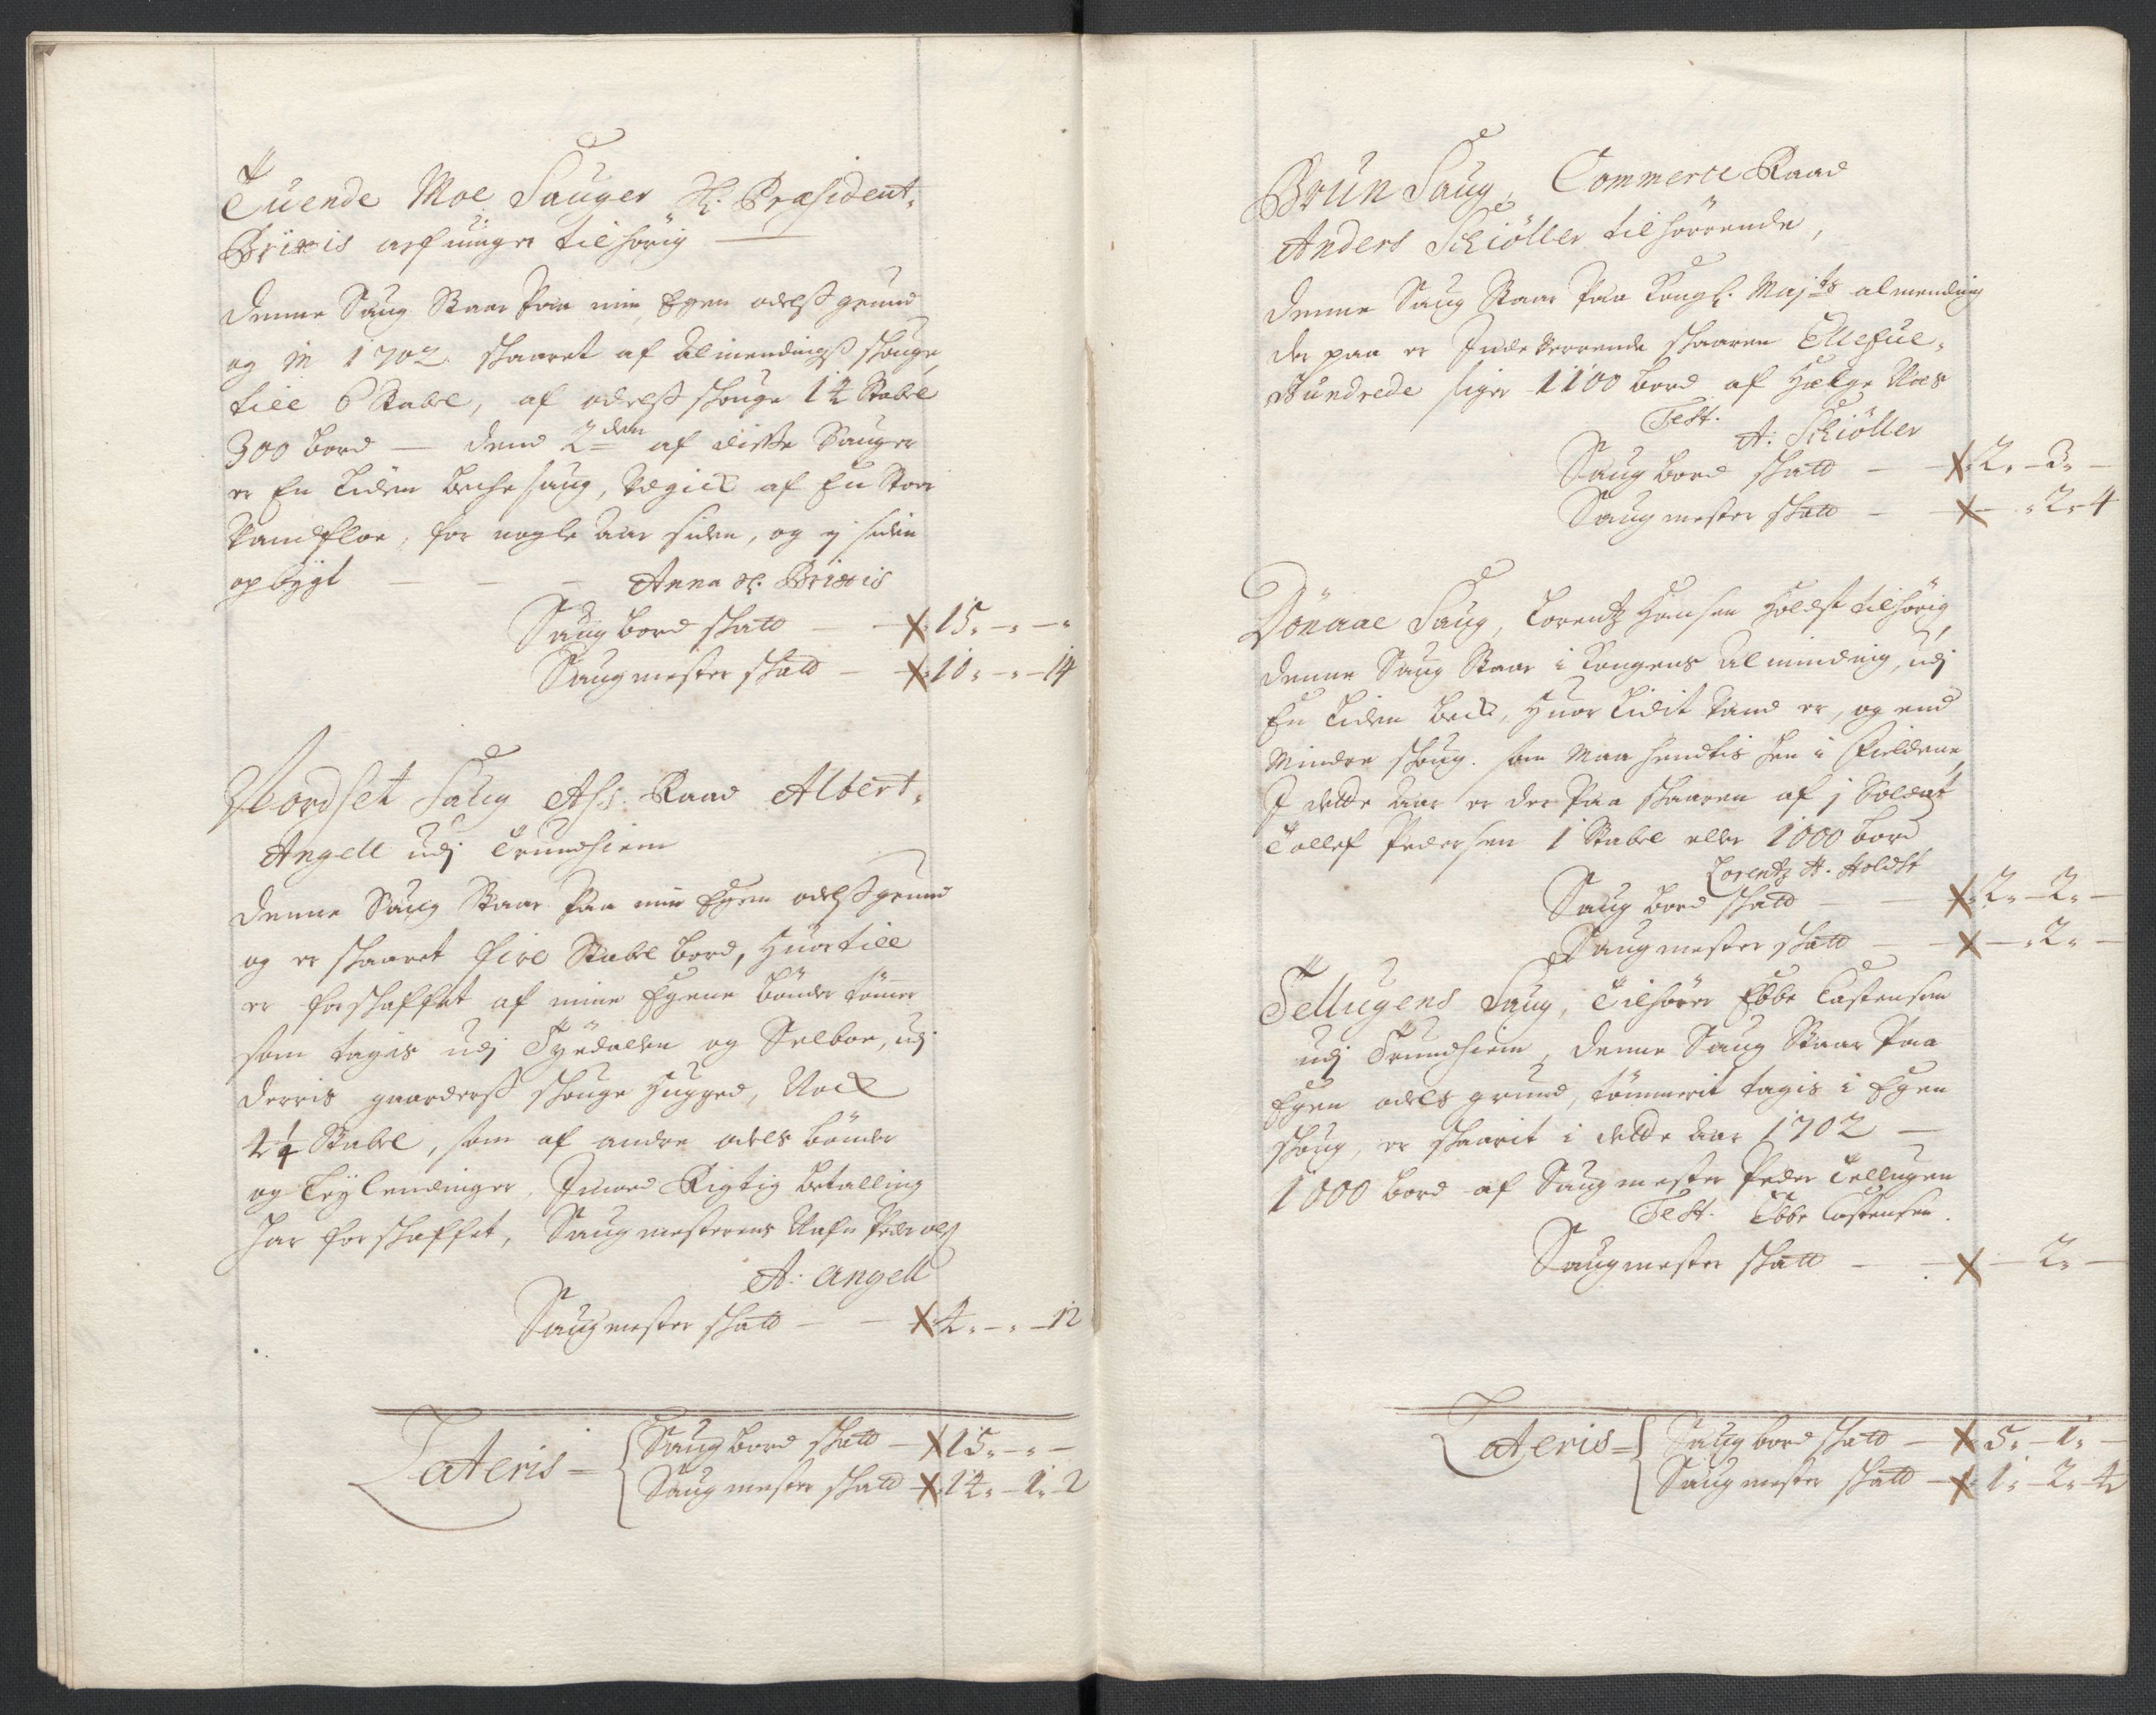 Tuende Moe Sauger Sl. Præsident
Brixis arfuinger tilhörig —
Denne Saug Staar Paa min Egen odelsß grund
og in 1702 skaaret af Almendingß skouge
till 6 Stabel, af odelß skouge 14 Stabel
300 bord — Dend 2den af disse Sauger
er En Liden beche saug, Begick af En Stor
Vandfloe, for nogle Aar siden, og ej siden
opbÿgt — — — Anna Sl. Brixis
Saug bord skatt — — X 15. — . — .
Saugmester skatt — X 10. — . — 14
Nordset Saug Ass. Raad Albert
Angell udj Trundhiem
Denne Saug Staar Paa min Egen odelßgrund
og er skaaret fire Stabel bord, Huortill
er forskaffet af mine Egene bönder tömer
som tages udj Tÿedallen og Selboe, udj
derris gaarderß skouge Hugged, Nock
4 1/4 Stabel, som af andre odels bönder
og Leÿlendinger, Imod Rigtig betalling
har forskaffet, Saugmesterens Nafn Peder Ols
A: Angell
Saugmester skatt — — X 4. — . — 12
Lateris = Saug bord skatt — X 15. — . —
Saugmester skatt X 14. — 1. 2
Brun Saug, Commerce Raad
Anders Schiöller tilhörende,
Denne Saug Staar Paa Kongl. Majts almending
der paa er Indeverende skaaren Ellefue
Hundrede siger 1100 bord af Helge Moes
Test.
A: Schiöller
Saug bord skatt — — X 2. — 3. —
Saugmester skatt — — X — . 2. 4
Dönaae Saug, Lorentz Hansen Holdst tilhörig,
Denne Saug Staar i Kongens Alminding, udj
En Liden beck, Huor Lidit Vand er, og end
Mindre skoug. som Maa hendtis hen i Fieldene,
I dette Aar er der Paa skaaren af j Soldat
Tollef Pedersen 1 Stabel eller 1000 bord
Lorentz H. Holdst
Saug bord skatt — — X 2. — 2. —
Saugmester skatt — — X — . 2. —
Tellugens Saug, Tilhörer Ebbe Castensen
udj Trundhiem, Denne Saug Staar Paa
Egen odels grund, tömmerit tagis i Egen
skoug, er skaarit i dette Aar 1702 —
1000 bord af Saugmester Peder Tellugen
Test. Ebbe Castensen.
Saugmester skatt — — X — 2. —
Lateris = Saug bord skatt — X 5. — 1. —
Saugmester skatt — X 1. — 2. 4